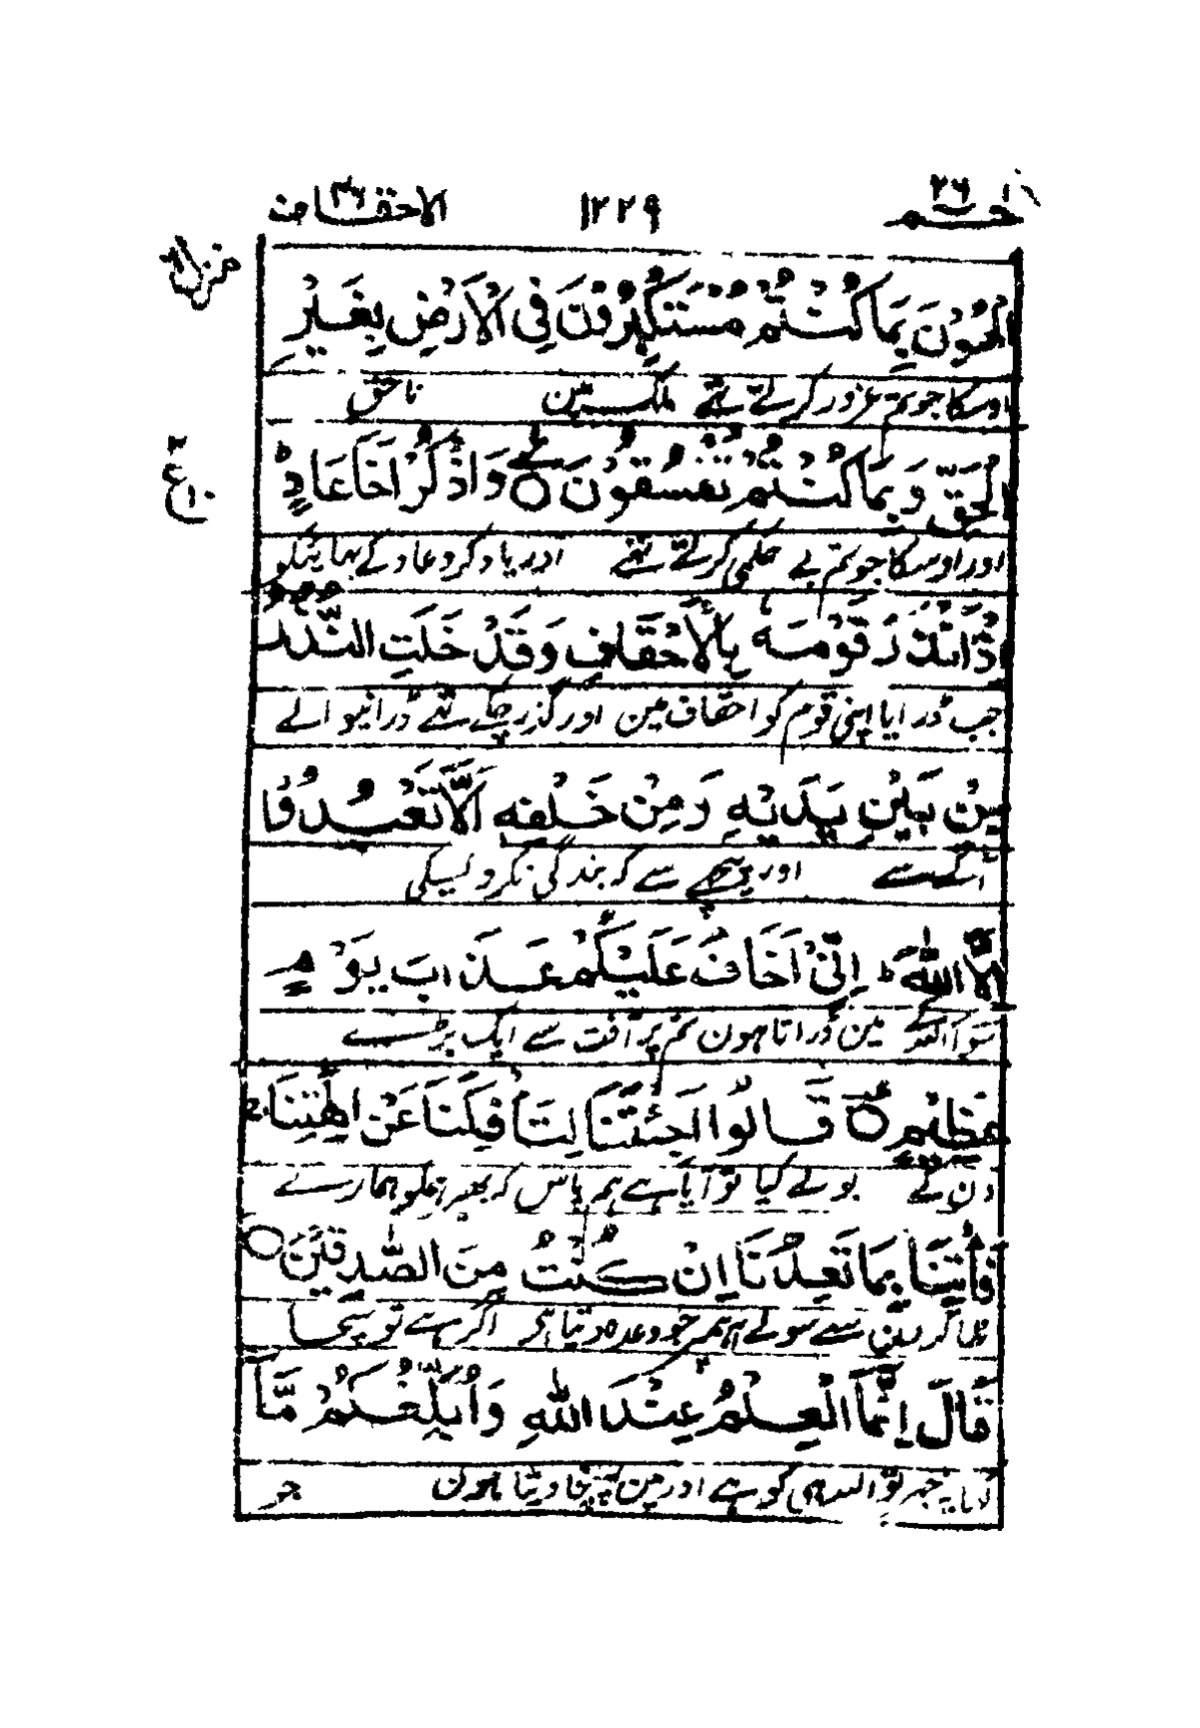 حٰم ٢٦ ١٢٢٩ الاحقاف ٤٦
منزل ٦
الْهُوْنِ بِمَا كُنْتُمْ تَسْتَكْبِرُوْنَ فِى الْاَرْضِ بِغَيْرِ
اوسکا جو تم غرور کرتے تھے ملک مین ناحق
الْحَقِّ وَبِمَا كُنْتُمْ تَفْسُقُوْنَ ○ وَاذْكُرْ اَخَا عَادٍ ط
ع ٣ ١٠
اور اوسکا جو تم بے حکمی کرتے تھے اور یاد کرو عاد کے بھائیکو
اِذْ اَنْذَرَ قَوْمَهٗ بِالْاَحْقَافِ وَقَدْ خَلَتِ النُّذُرُ
جب ڈرایا اپنی قوم کو احقاف مین اور گذر چکے تھے ڈرانیوالے
مِنْ بَيْنِ يَدَيْهِ وَمِنْ خَلْفِهٖ اَلَّا تَعْبُدُوْا
آگے سے اور پیچھے سے کہ بندگی نکرو کسیکی
اِلَّا اللّٰهَ ط اِنِّىْ اَخَافُ عَلَيْكُمْ عَذَابَ يَوْمٍ
سوا اللہ کے مین ڈراتا ہون تم پر آفت سے ایک بڑے
عَظِيْمٍ ○ قَالُوْا اَجِئْتَنَا لِتَاْفِكَنَا عَنْ اٰلِهَتِنَا ج
دن کے بولے کیا تو آیا ہے ہم پاس کہ پھیرے ہمکو ہمارے
فَاْتِنَا بِمَا تَعِدُنَا اِنْ كُنْتَ مِنَ الصّٰدِقِيْنَ ○
سے سو لے آ ہمپر جو وعدہ دیتا ہے اگر ہے تو سچا
قَالَ اِنَّمَا الْعِلْمُ عِنْدَ اللّٰهِ وَاُبَلِّغُكُمْ مَّا
کہا یہ خبر تو اللہ ہی کو ہے اور مین پہنچا دیتا ہون جو